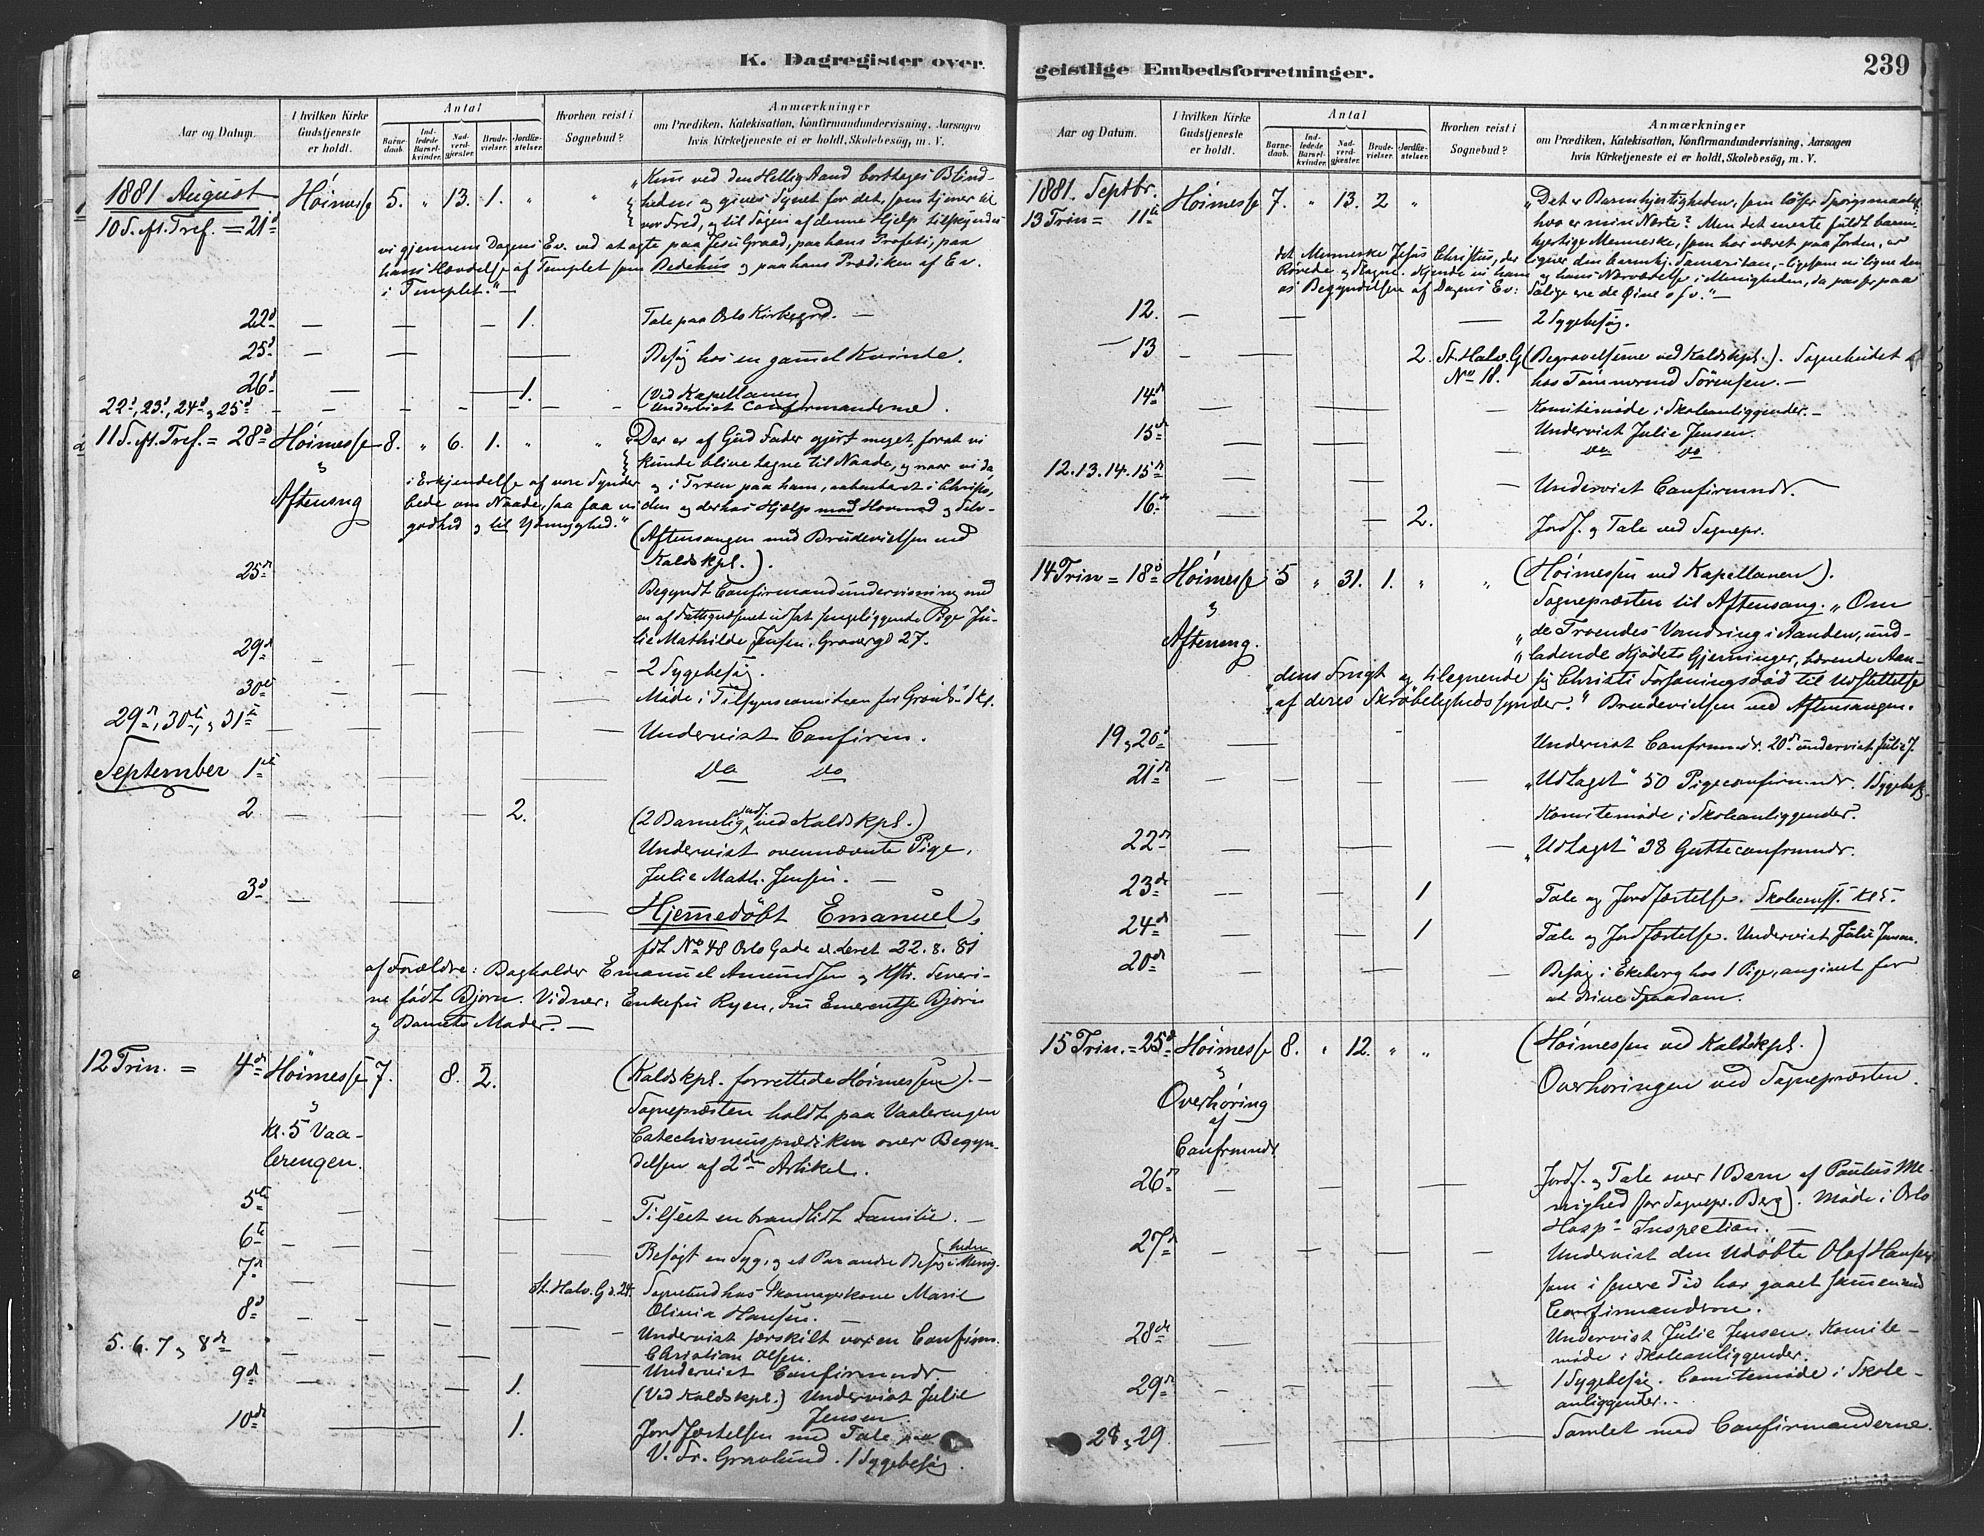 K. Dagregister over
Aar og Datum.
I hvilken Kirke Gudstjeneste er holdt.
Antal
Barnedaab.
Indledede Barselkvinder.
Nadverdgjester.
Brudevielser.
Jordfæstelser.
Hvorhen reist i Sognebud?
Anmærkninger
om Prædiken, Katekisation, Konfirmandundervisning, Aarsagen
hvis Kirketjeneste ei er holdt, Skolebesøg, m. V.
1881 August Höimesse 5. " 13. 1. " " "Kun ved den Hellig Aand borttages Blind-
10 S. Af. Tref. = 21d heden og gives Synet for det, som tjener til
vor Fred, og til Søgen af denne Hjelp tilskyndes
vi gjennem Dagens Ev. ved at agte paa Jesu Graad, paa hans Profeti, paa
hans Hævdelse af Templet som Bedehus og paa hans Prædiken af Ev.
i Templet." —
22d — — — 1. Tale paa Oslo Kirkegrd. —
25d — — — Besøg hos en gammel Kvinde.
26d — — 1. (Ved Kapellanen)
22d, 23d, 24d, og 25d — — — Undervist Confirmanderne).
11 S. Af. Tref. = 28d Höimesse 8. " 6. 1. " " "Der er af Gud Fader gjort meget, forat vi
og kunde blive tagne til Naade, og naar vi da
Aftensang i Erkjendelse af vore Synder og i Troen paa ham, aabenbaret i Christo,
bede om Naade, saa faa vi den og derhos Hjælp mod Hovmod og Selv-
godhed og til Ydmyghed."
(Aftensangen med Brudevielsen ved
Kaldskpl.).
25d Begyndt Confirmandundervisning med
en af Fattigvæsenet udsat sengeliggende Pige Ju-
lie Mathilde Jensen, Gravergd 27.
29d — — — 2 Sygebesøg.
30te — — — Møde i Tilsynscomiteen for Grønlds Skl.
29d, 30te, og 31te — — — Undervist Confirm.
September 1ste — — — Do Do
2 — — — 2. (2 Barnelig jordf. ved Kaldskpl.)
Undervist ovennævnte Pige,
Julie Math. Jensen. —
3d — — — Hjemmedöbt Emanuel,
fdt No 48 Oslo Gade
22.8.81
af Forældre: Bogholder Emanuel Amundsen og Hstr. Severi-
ne født Bjorn. Vidner: Enkefru Ryen, Fru Bjorn
og Barnets Moder. —
12 Trin. = 4de Höimesse 7. 8. 2. (Kaldskpl. forrettede Höimessen). —
og Sognepræsten holdt paa Vaalerengen
Kl. 5 Vaa- Catechismusprædiken over Begyn-
lerengen. delsen af 2den Artikel.
5te — — — Tilseet en brandlidt Familie. —
6te — — — Besøgt en Syg, og et Par andre Besøg i Menig.
7de — — — St. Halv. G. 24. Sognebud hos Skomagerkone Marie
Olivia Hansen. —
8de — — — Undervist særskilt voxen Confirm.
Christian Olsen.
5. 6. 7 og 8de — — — Undervist Confirmandr.
9de — — 1. (Ved Kaldskpl.) Undervist Julie
Jensen
10de — — 1. Jordfæstelsen med Tale paa
V. Fr. Gravlund. 1 Sygebesøg.
geistlige Embedsforretninger.
239
Aar og Datum.
I hvilken Kirke Gudstjeneste er holdt.
Antal
Barnedaab.
Indledede Barselkvinder.
Nadverdgjester.
Brudevielser.
Jordfæstelser.
Hvorhen reist i Sognebud?
Anmærkninger
om Prædiken, Katekisation, Konfirmandundervisning, Aarsagen
hvis Kirketjeneste ei er holdt, Skolebesøg, m. V.
1881. Septbr. Höimesse 7. " 13. 2 " "Det er Barmhjertigheden, som löser Spørgsmaalet:
13 Trin = 11te hvo er min Næste? Men det eneste fuldt barm-
hjertige Menneske, som har været paa Jorden, er
det Menneske Jesus Christus, der ligner den barmhj. Samaritan, ligesom vi ligne den
Røvede og Slagne. Kjende vi ham og hans Nærværelse i Menigheden, da passer paa
os Begyndelsen af Dagens Ev: Salige ere de Øine osv." —
12. — — — 2 Sygebesøg.
13 — — 2. St. Halv. G. (Begravelserne ved Kaldskpl.). Sognebudet
No 18. hos Tømmermd Sörensen. —
14de — — — Komitemøde i Skoleanliggender. —
15de — — — Undervist Julie Jensen.
Do Do
12. 13. 14. 15de — — — Undervist Confirmndr. —
16de — 2. Jordf. og Tale ved Sognepr.
14 Trin = 18de Höimesse 5 " 31. 1. " " (Höimessen ved Kapellanen).
og Sognepræsten til Aftensang. "Om
Aftensang. "de Troendes Vandring i Aanden, und-
"ladende Kjødets Gjerninger, bærende Aan-
"dens Frugt og tilegnende sig Christi Forsoningsdød til Udslettelse
"af deres Skrøbelighedssynder." Brudevielsen ved Aftensangen.
19 og 20de — — — Undervist Confirmndr. 20de undervist Julie J.
21de — — — "Udtaget" 50 Pigeconfirmndr. 1 Sygebesøg.
Komitemøde i Skoleanliggender.
22de — — — "Udtaget" 38 Gutteconfrmndr.
23de — — 1 Tale og Jordfæstelse.
24de — — 1 Tale og Jordfæstelse. Undervist Julie Jensen.
20de — — — Besøg i Ekeberg hos 1 Pige, angivet for
at drive Spaadom.
15 Trin. = 25de Höimesse 8. " 12. " " (Höimessen ved Kaldskpl.)
og Overhöringen ved Sognepræsten.
Overhöring
af
Confrmndr
26de — — — Jordf. og Tale over 1 Barn af Paulus Me-
nighed for Sognepr. Berg). Møde i Oslo
Hosp. Inspection. —
27de — — — Undervist den udøbte Olaf Hansen
som i senere Tid har gaaet sammen med
Confirmanderne.
28de — — — Undervist Julie Jensen. Komite-
møde i Skoleanliggender.
29de — — — 1 Sygebesøg. Comitemøde i Skole-
anliggender.
28 og 29 — — — Samlet med Confirmanderne.